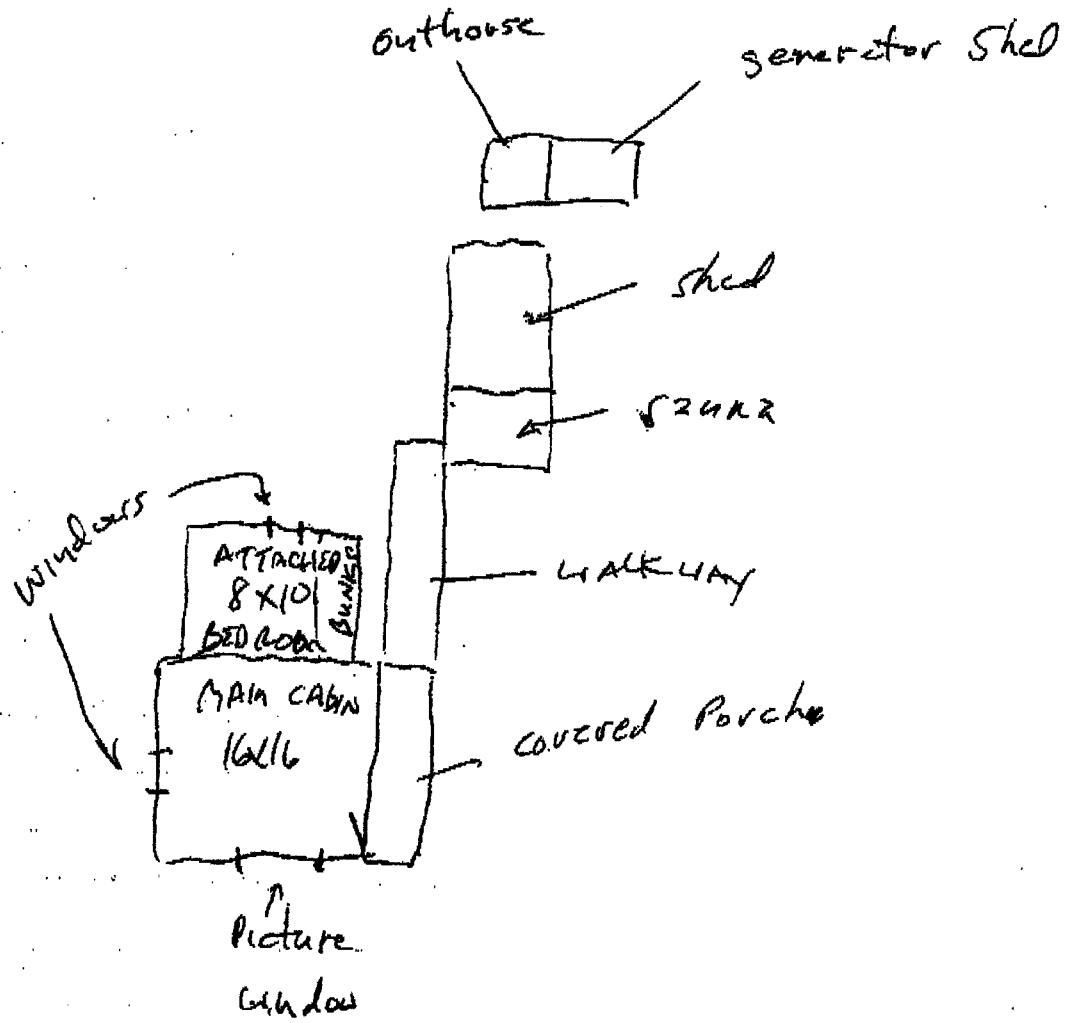 outhouse
generator Shed
shed
sauna
Windows
ATTACHED
8 x 10
BEDROOM
BUNKS
WALKWAY
MAIN CABIN
16x16
covered Porch
Picture
window